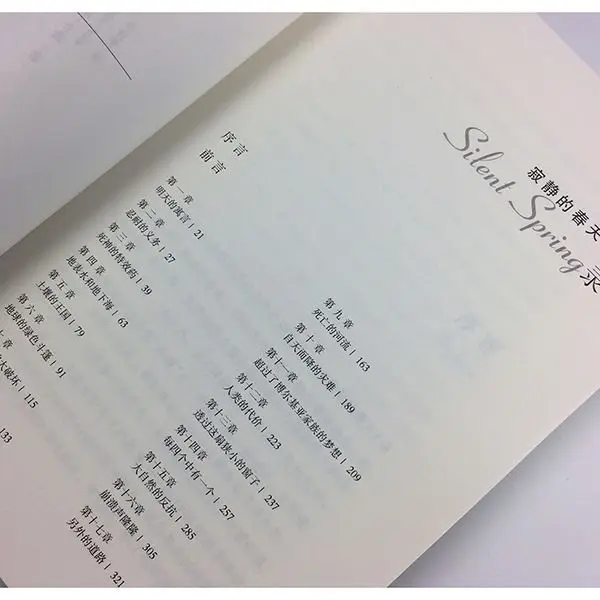 寂静的春天
Silent Spring
录
序言
前言
第一章
明天的寓言 | 21
第二章
忍耐的义务 | 27
第三章
死神的特效药 | 39
第四章
地表水和地下海 | 63
第五章
土壤的王国 | 79
第六章
地球的绿色斗篷 | 91
章
大破坏 | 115
133
第九章
死亡的河流 | 163
第十章
自天而降的灾难 | 189
第十一章
超过了博尔基亚家族的梦想 | 209
第十二章
人类的代价 | 223
第十三章
透过这扇狭小的窗子 | 237
第十四章
每四个中有一个 | 257
第十五章
大自然的反抗 | 285
第十六章
崩溃声隆隆 | 305
第十七章
另外的道路 | 321